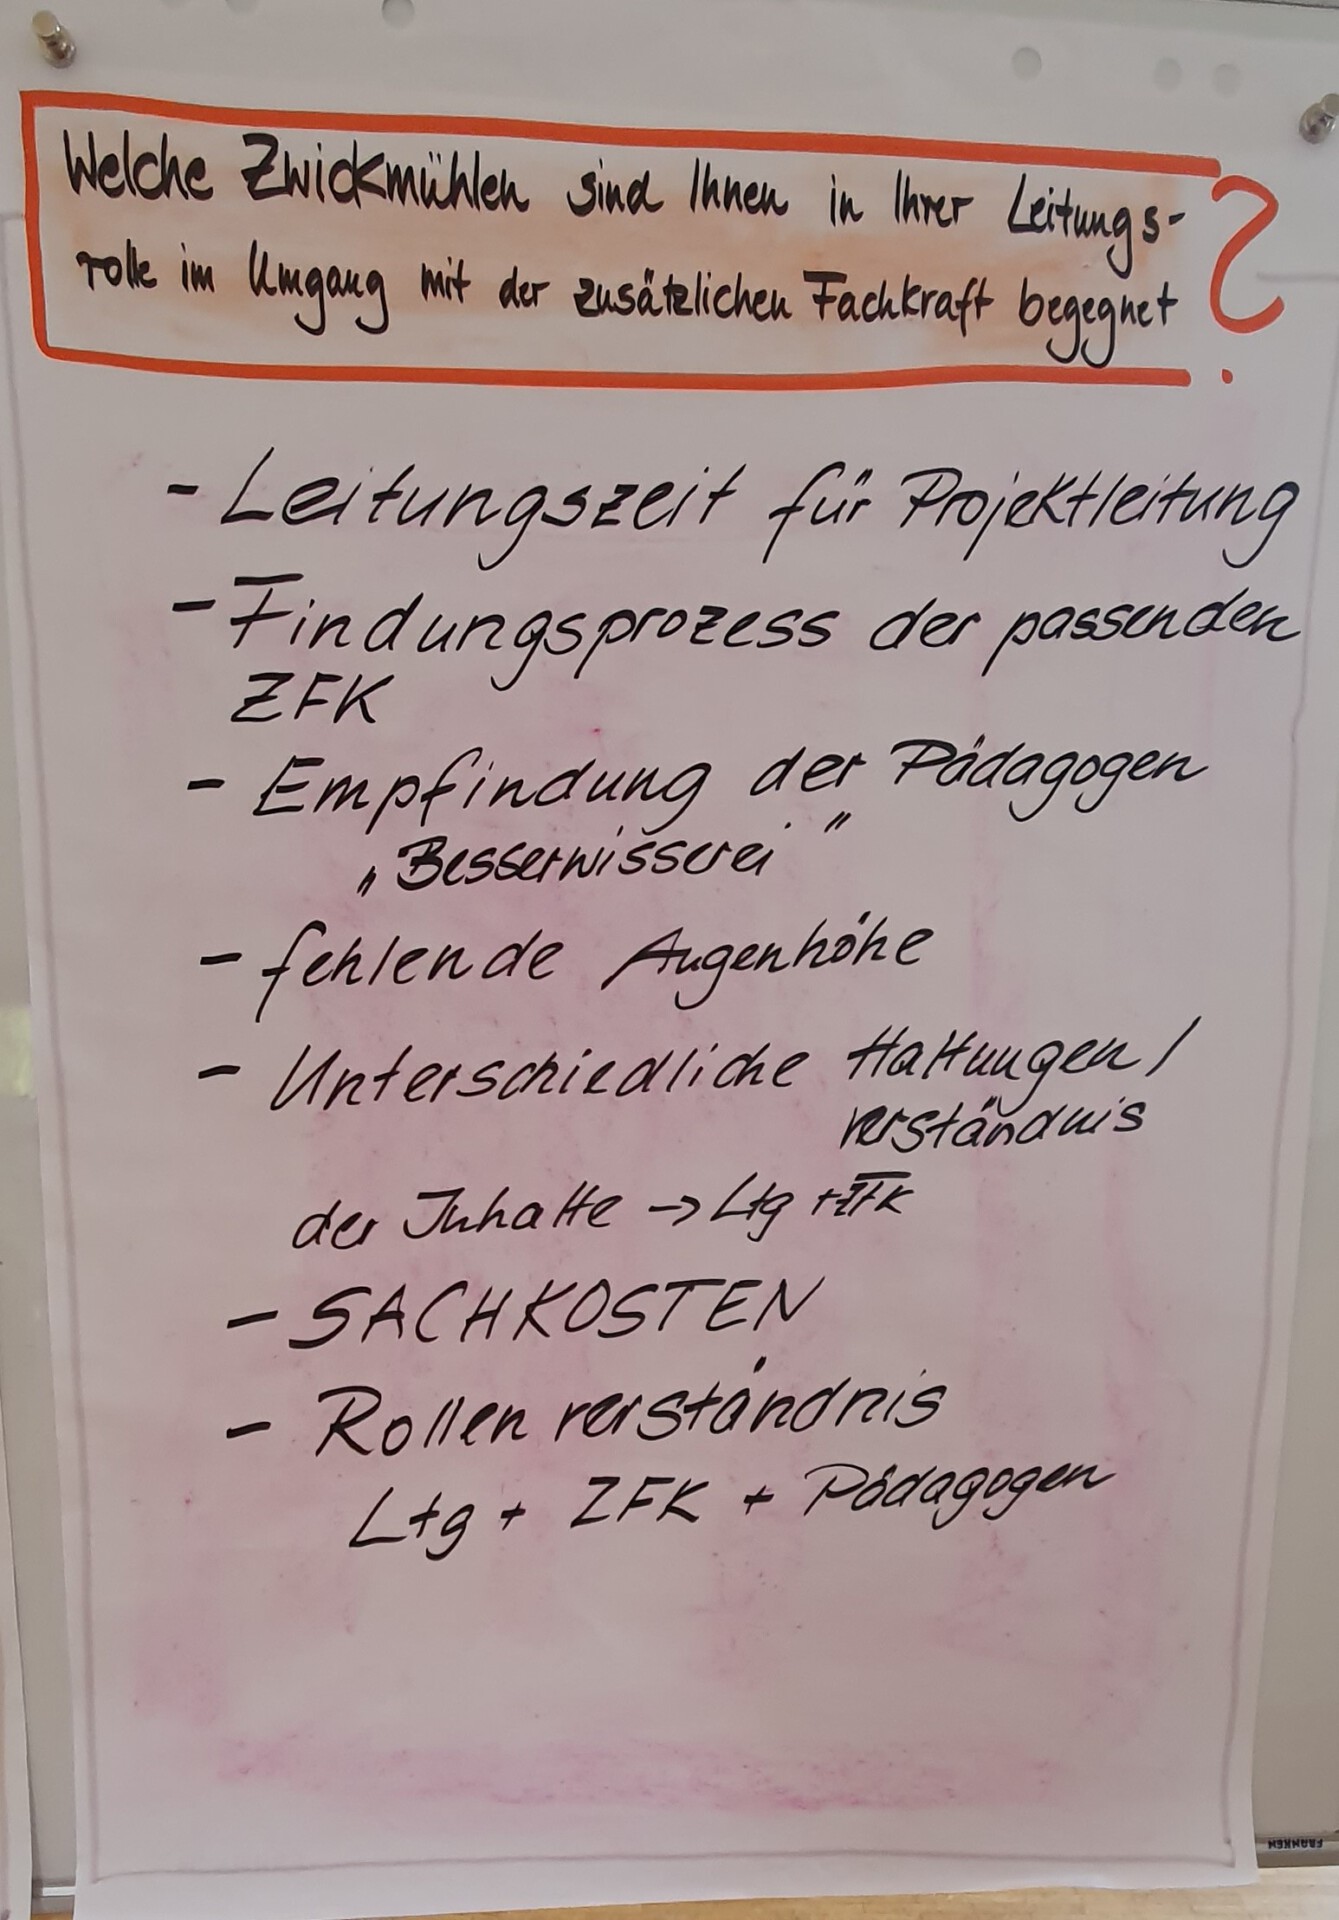 Welche Zwickmühlen sind Ihnen in Ihrer Leitungs-
rolle im Umgang mit der zusätzlichen Fachkraft begegnet ?
- Leitungszeit für Projektleitung
- Findungsprozess der passenden
ZFK
- Empfindung der Pädagogen
„Besserwisserei"
- fehlende Augenhöhe
- Unterschiedliche Haltungen /
verständnis
der Inhalte → Ltg + ZFK
- SACHKOSTEN
- Rollenverständnis
Ltg + ZFK + Pädagogen
FRANKEN